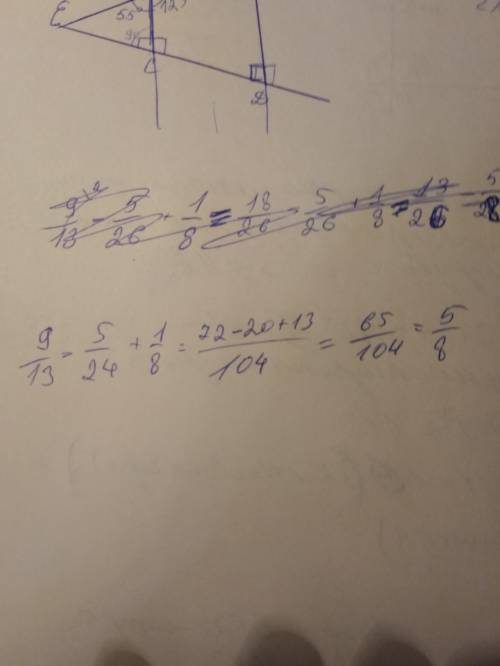 E 55° 12
C
D
9/13 - 5/26 + 1/8 = 18/26 - 5/26 + 1/8 = 13/26 - 5/28
9/13 - 5/24 + 1/8 = 72-20+13/104 = 65/104 = 5/8